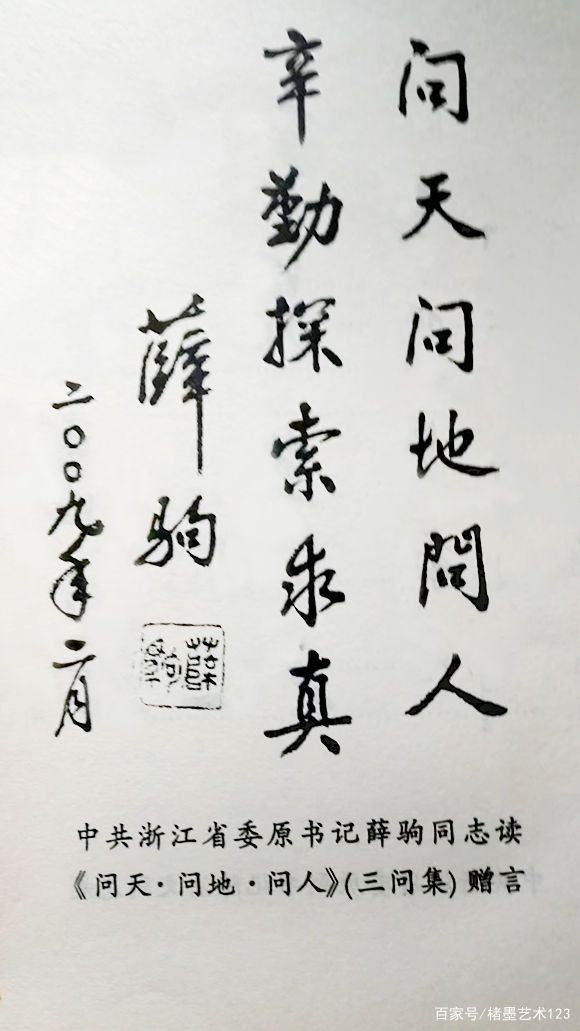 问天问地問人
辛勤探索求真
薛驹
二〇〇九年二月
中共浙江省委原书记薛驹同志读
《问天·问地·问人》(三问集)赠言
百家号/楮墨艺术123